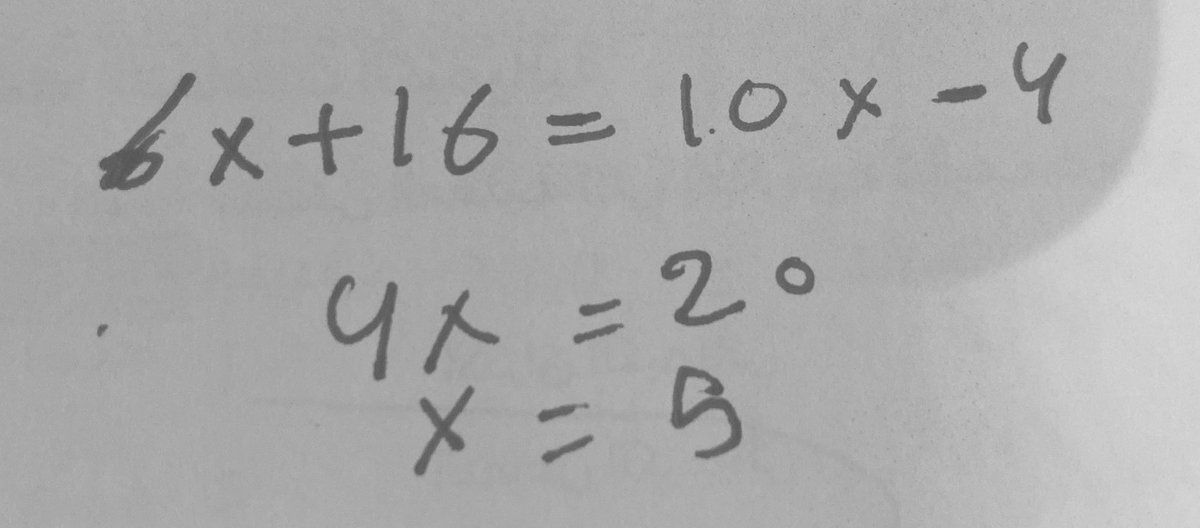 6x+16=10x-4
4x=20
x=5